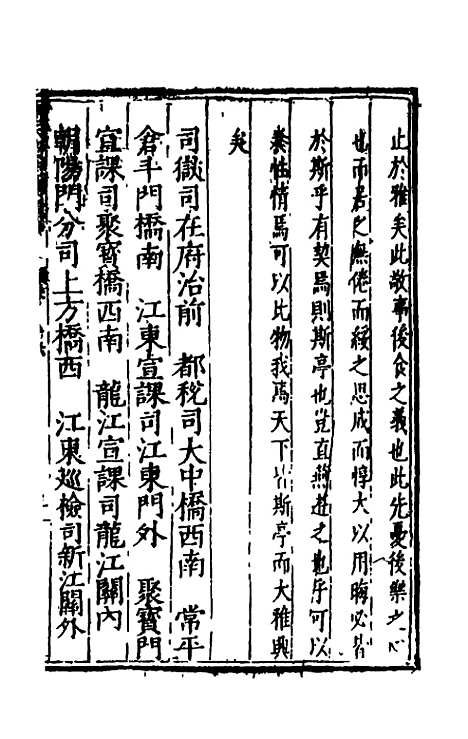 止於雅矣此敬事後食之義也此先憂後樂之心
也而居之無倦而綏之思成而惇大以用晦必皆
於斯乎有契焉則斯亭也豈直燕遊之地乎可以
養性情焉可以比物我焉天下皆斯亭而大雅興
矣
司獄司在府治前　都稅司大中橋西南　常平
倉斗門橋南　江東宣課司江東門外　聚寶門
宣課司聚寶橋西南　龍江宣課司龍江關內
朝陽門分司上方橋西　江東巡檢司新江關外